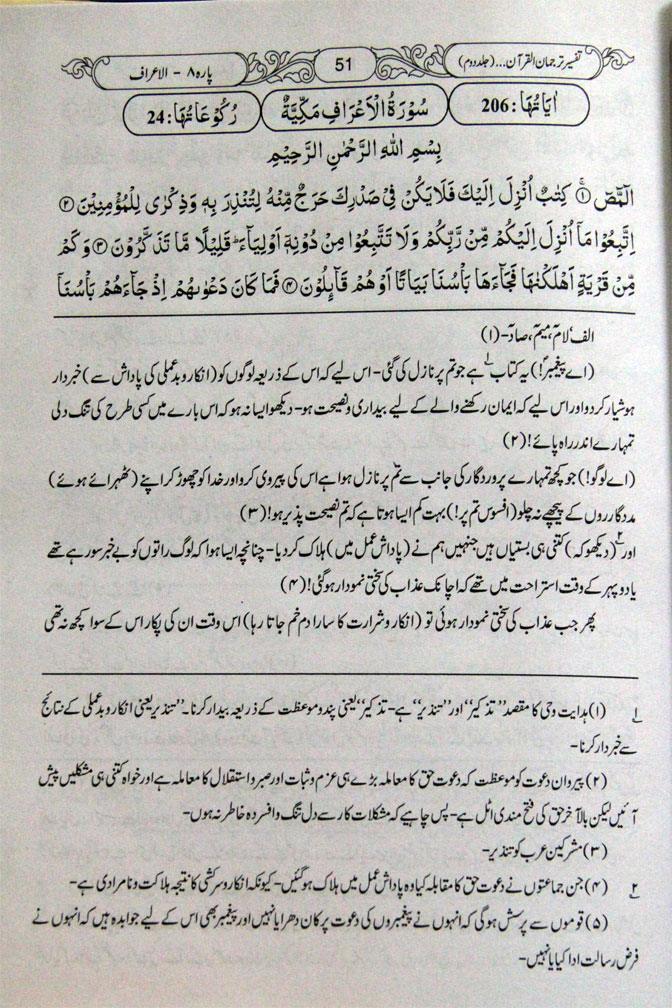 تفسیر ترجمان القرآن... (جلد دوم)
51
پارہ ۸ - الاعراف
اٰیَاتُهَا : 206
سُوْرَةُ الْاَعْرَافِ مَكِّيَّةٌ
رُكُوْعَاتُهَا : 24
بِسْمِ اللهِ الرَّحْمٰنِ الرَّحِيْمِ
الٓمّٓصٓ ۚ﴿۱﴾ كِتٰبٌ اُنْزِلَ اِلَيْكَ فَلَا يَكُنْ فِيْ صَدْرِكَ حَرَجٌ مِّنْهُ لِتُنْذِرَ بِهٖ وَذِكْرٰى لِلْمُؤْمِنِيْنَ ﴿۲﴾
اِتَّبِعُوْا مَاۤ اُنْزِلَ اِلَيْكُمْ مِّنْ رَّبِّكُمْ وَلَا تَتَّبِعُوْا مِنْ دُوْنِهٖۤ اَوْلِيَآءَ ؕ قَلِيْلًا مَّا تَذَكَّرُوْنَ ﴿۳﴾ وَكَمْ
مِّنْ قَرْيَةٍ اَهْلَكْنٰهَا فَجَآءَهَا بَاْسُنَا بَيَاتًا اَوْ هُمْ قَآئِلُوْنَ ﴿۴﴾ فَمَا كَانَ دَعْوٰىهُمْ اِذْ جَآءَهُمْ بَاْسُنَاۤ
الف‘ لام‘ میم‘ صاد - (۱)
(اے پیغمبر!) یہ کتاب ۱؎ ہے جو تم پر نازل کی گئی - اس لیے کہ اس کے ذریعہ لوگوں کو (انکار و بدعملی کی پاداش سے) خبردار
ہوشیار کر دو اور اس لیے کہ ایمان رکھنے والے کے لیے بیداری و نصیحت ہو - دیکھو ایسا نہ ہو کہ اس بارے میں کسی طرح کی تنگ دلی
تمہارے اندر راہ پائے! (۲)
(اے لوگو!) جو کچھ تمہارے پروردگار کی جانب سے تم پر نازل ہوا ہے اس کی پیروی کرو اور خدا کو چھوڑ کر اپنے (ٹھہرائے ہوئے)
مددگارروں کے پیچھے نہ چلو (افسوس تم پر!) بہت کم ایسا ہوتا ہے کہ تم نصیحت پذیر ہو! (۳)
اور ۲؎ (دیکھو کہ) کتنی ہی بستیاں ہیں جنہیں ہم نے (پاداش عمل میں) ہلاک کر دیا - چنانچہ ایسا ہوا کہ لوگ راتوں کو بے خبر سو رہے تھے
یا دوپہر کے وقت استراحت میں تھے کہ اچانک عذاب کی سختی نمودار ہو گئی! (۴)
پھر جب عذاب کی سختی نمودار ہوئی تو (انکار و شرارت کا سارا دم خم جاتا رہا) اس وقت ان کی پکار اس کے سوا کچھ نہ تھی
۱؎ (۱) ہدایت وحی کا مقصد "تذکیر" اور "تنذیر" ہے - تذکیر یعنی پند و موعظت کے ذریعہ بیدار کرنا - "تنذیر یعنی انکار و بدعملی کے نتائج
سے خبردار کرنا -
(۲) پیروان دعوت کو موعظت کہ دعوت حق کا معاملہ بڑے ہی عزم و ثبات اور صبر و استقلال کا معاملہ ہے اور خواہ کتنی ہی مشکلیں پیش
آئیں لیکن بالآخر حق کی فتح مندی اٹل ہے - پس چاہیے کہ مشکلات کار سے دل تنگ و افسردہ خاطر نہ ہوں -
(۳) مشرکین عرب کو تنذیر -
۲؎ (۴) جن جماعتوں نے دعوت حق کا مقابلہ کیا وہ پاداش عمل میں ہلاک ہو گئیں - کیونکہ انکار و سرکشی کا نتیجہ ہلاکت و نامرادی ہے -
(۵) قوموں سے پرسش ہو گی کہ انہوں نے پیغمبروں کی دعوت پر کان دھرا یا نہیں اور پیغمبر بھی اس کے لیے جوابدہ ہیں کہ انہوں نے
فرض رسالت ادا کیا یا نہیں -